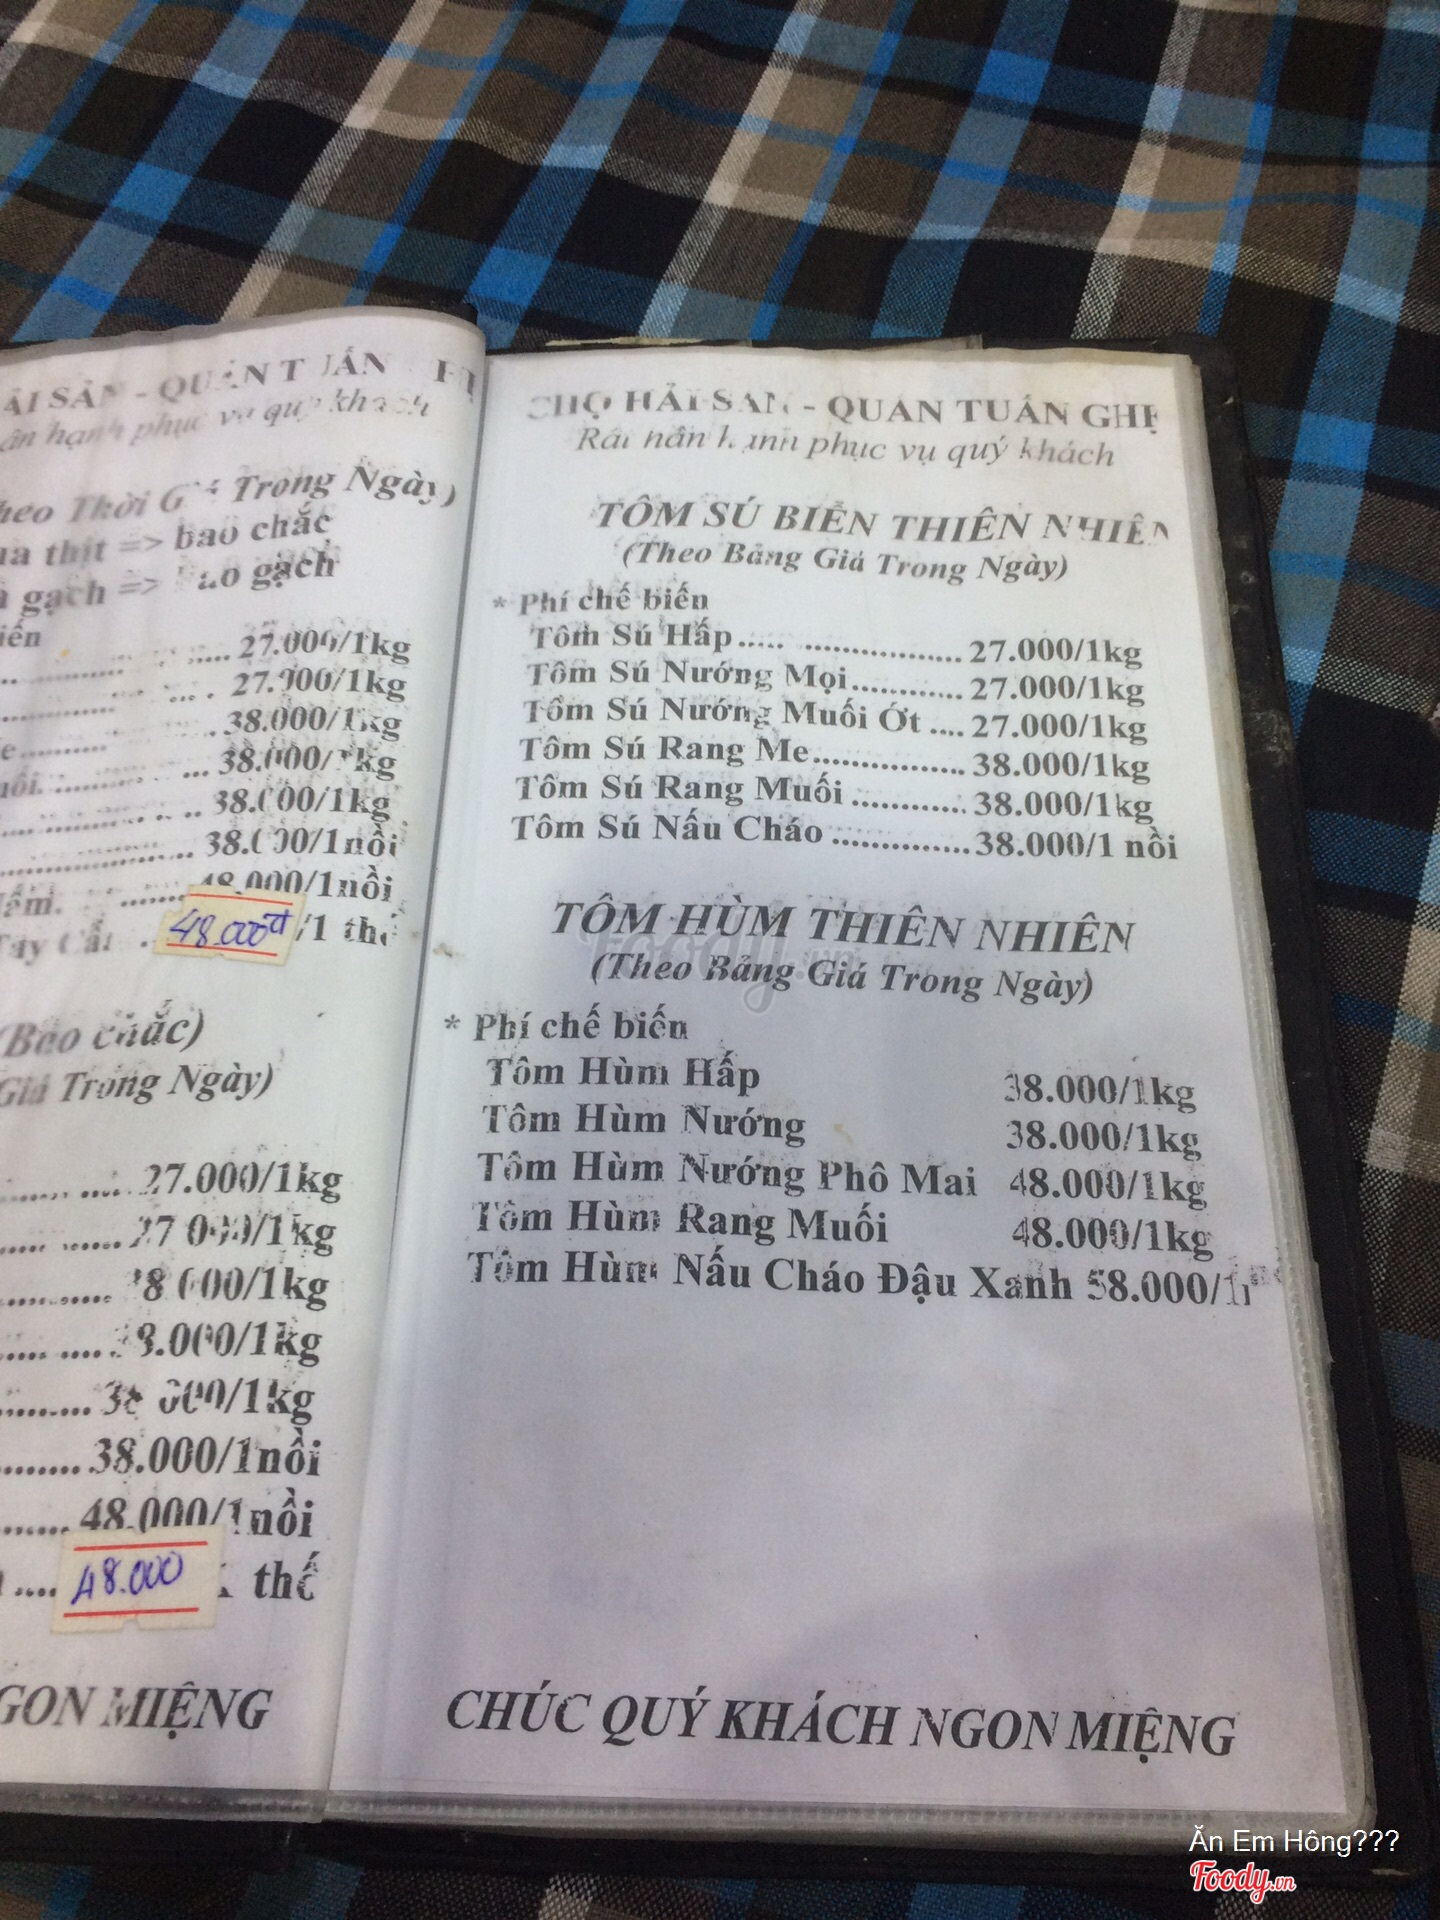 ẢI SẢN - QUÁN TUẤN
ân hạnh phục vụ quý khách
heo Thời Giá Trong Ngày)
ua thịt => bao chắc
gạch => bao gạch
iến
27.000/1kg
27.900/1kg
38.000/1kg
38.000/1kg
38.000/1kg
38.000/1nồi
48.000/1nồi
48.000đ /1 thố
(Bao chắc)
Giá Trong Ngày)
27.000/1kg
27.000/1kg
38.000/1kg
38.000/1kg
38.000/1kg
38.000/1nồi
48.000/1nồi
48.000 thố
GON MIỆNG
CHỢ HẢI SẢN - QUÁN TUẤN GHẸ
Rất hân hạnh phục vụ quý khách
TÔM SÚ BIỂN THIÊN NHIÊN
(Theo Bảng Giá Trong Ngày)
* Phí chế biến
Tôm Sú Hấp..... ................. 27.000/1kg
Tôm Sú Nướng Mọi............ 27.000/1kg
Tôm Sú Nướng Muối Ớt .... 27.000/1kg
Tôm Sú Rang Me................ 38.000/1kg
Tôm Sú Rang Muối ............ 38.000/1kg
Tôm Sú Nấu Cháo ..............38.000/1 nồi
TÔM HÙM THIÊN NHIÊN
(Theo Bảng Giá Trong Ngày)
* Phí chế biến
Tôm Hùm Hấp 38.000/1kg
Tôm Hùm Nướng 38.000/1kg
Tôm Hùm Nướng Phô Mai 48.000/1kg
Tôm Hùm Rang Muối 48.000/1kg
Tôm Hùm Nấu Cháo Đậu Xanh 58.000/1n
CHÚC QUÝ KHÁCH NGON MIỆNG
Foody.vn
Ăn Em Hông???
Foody.vn